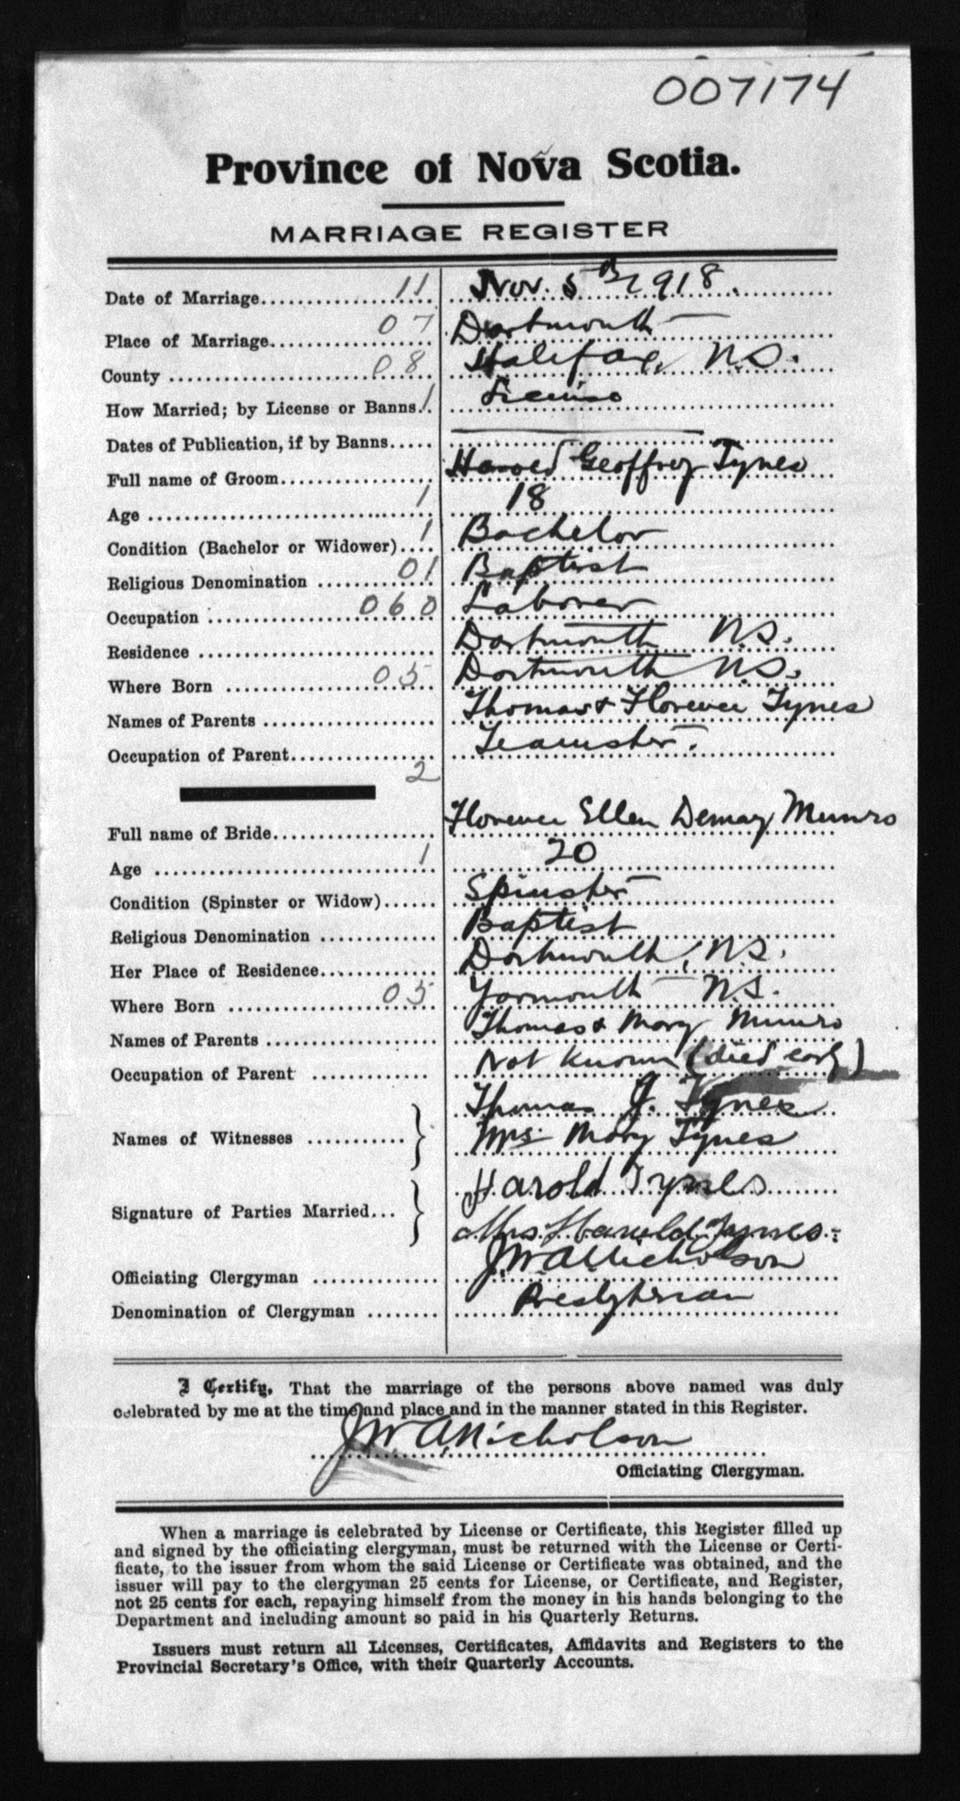 007174
Province of Nova Scotia.
MARRIAGE REGISTER
Date of Marriage 11 Nov. 5th 1918.
Place of Marriage 07 Dartmouth
County 08 Halifax, N.S.
How Married; by License or Banns. 1 License
Dates of Publication, if by Banns
Full name of Groom Harold Geoffrey Tynes
Age 1 18
Condition (Bachelor or Widower) 1 Bachelor
Religious Denomination 01 Baptist
Occupation 060 Laborer
Residence Dartmouth N.S.
Where Born 05 Dartmouth N.S.
Names of Parents Thomas & Florence Tynes
Occupation of Parent Teamster.
2
Full name of Bride Florence Ellen Demay Munro
Age 1 20
Condition (Spinster or Widow) Spinster
Religious Denomination Baptist
Her Place of Residence Dartmouth, N.S.
Where Born 05 Yarmouth N.S.
Names of Parents Thomas & Mary Munro
Occupation of Parent Not known (died early)
Names of Witnesses Thomas J. Tynes
Mrs. Mary Tynes
Signature of Parties Married Harold Tynes
Mrs. Harold Tynes.
Officiating Clergyman J W A Nicholson
Denomination of Clergyman Presbyterian
I Certify, That the marriage of the persons above named was duly
celebrated by me at the time and place and in the manner stated in this Register.
J W A Nicholson
Officiating Clergyman.
When a marriage is celebrated by License or Certificate, this Register filled up
and signed by the officiating clergyman, must be returned with the License or Certi-
ficate, to the issuer from whom the said License or Certificate was obtained, and the
issuer will pay to the clergyman 25 cents for License, or Certificate, and Register,
not 25 cents for each, repaying himself from the money in his hands belonging to the
Department and including amount so paid in his Quarterly Returns.
Issuers must return all Licenses, Certificates, Affidavits and Registers to the
Provincial Secretary's Office, with their Quarterly Accounts.